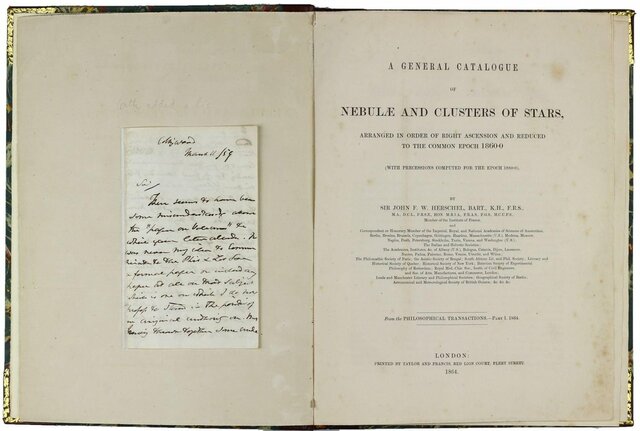 Collingwood
March 11/59
Sir,
There seems to have been
some misunderstanding about
the "paper on Volcanos" to
which your letter alludes. It
was never my idea to commu-
nicate to the Phil &
a formal paper or indeed any
paper at all on that subject
which is one on which I do not
profess to stand in the point of
an original authority on. My
having thrown together some
A GENERAL CATALOGUE
OF
NEBULÆ AND CLUSTERS OF STARS,
ARRANGED IN ORDER OF RIGHT ASCENSION AND REDUCED
TO THE COMMON EPOCH 1860·0
(WITH PRECESSIONS COMPUTED FOR THE EPOCH 1880·0).
BY
SIR JOHN F. W. HERSCHEL, BART., K.H., F.R.S.,
Member of the Institute of France.
and
Correspondent or Honorary Member of the Imperial, Royal, and National Academies of Sciences of Amsterdam,
Berlin, Dresden, Brussels, Copenhagen, Göttingen, Haarlem, Massachusetts (U.S.), Modena, Moscow,
Naples, Petersburg, Stockholm, Turin, Vienna, and Washington (U.S.);
The Italian and Helvetic Societies;
The Academies, Institutes, &c. of Albany (U.S.), Bologna, Catania, Dijon, Lausanne,
Nantes, Padua, Palermo, Rome, Venice, Utrecht, and Wilna;
The Philomathic Society of Paris; the Asiatic Society of Bengal; South African Lit. and Phil. Society; Literary and
Historical Society of Quebec; Historical Society of New York; Society of Experimental
Philosophy of Rotterdam; Royal Med.-Chir. Soc.; Inst. of Civil Engineers,
and Soc. of Arts, Manufactures, and Commerce, London;
Leeds and Manchester Literary and Philosophical Societies; Geographical Society of Berlin,
Astronomical and Meteorological Society of British Guiana, &c. &c. &c.
From the PHILOSOPHICAL TRANSACTIONS.—PART I. 1864.
LONDON:
PRINTED BY TAYLOR AND FRANCIS, RED LION COURT, FLEET STREET.
1864.